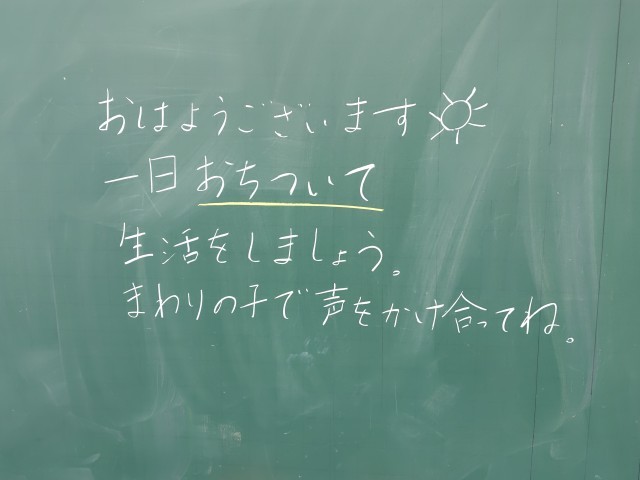 おはようございます
一日おちついて
生活をしましょう。
まわりの子で声をかけ合ってね。